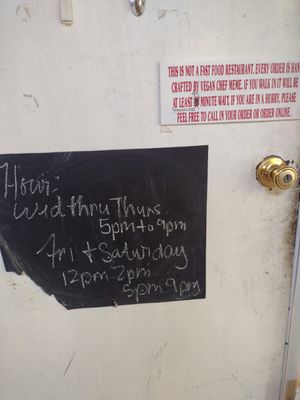 THIS IS NOT A FAST FOOD RESTAURANT. EVERY ORDER IS HAN
CRAFTED BY VEGAN CHEF MEME. IF YOU WALK IN IT WILL BE
AT LEAST MINUTE WAIT. IF YOU ARE IN A HURRY, PLEASE
FEEL FREE TO CALL IN YOUR ORDER OR ORDER ONLINE.
Hour:
Wed thru Thurs
5pm to 9pm
Fri + Saturday
12pm-2pm
5pm 9pm